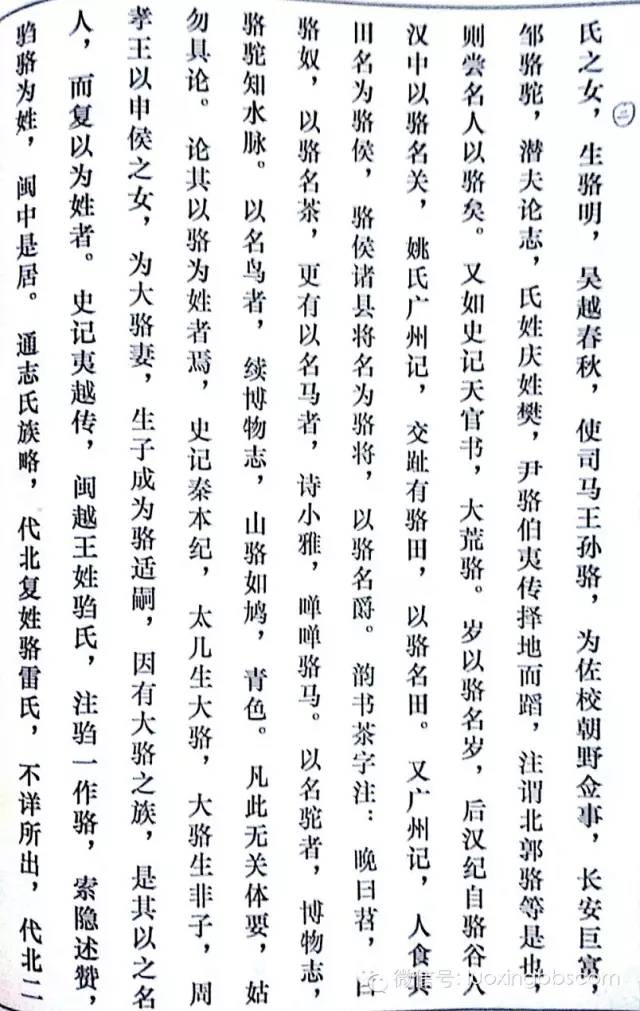 ㊁
氏之女，生骆明，吴越春秋，使司马王孙骆，为佐校朝野佥事，长安巨富，
邹骆驼，潜夫论志，氏姓庆姓樊，尹骆伯夷传择地而蹈，注谓北郭骆等是也，
则尝名人以骆矣。又如史记天官书，大荒骆。岁以骆名岁，后汉纪自骆谷入
汉中以骆名关，姚氏广州记，交趾有骆田，以骆名田。又广州记，人食其
田名为骆侯，骆侯诸县将名为骆将，以骆名爵。韵书茶字注：晚曰茗，曰
骆奴，以骆名茶，更有以名马者，诗小雅，啴啴骆马。以名驼者，博物志，
骆驼知水脉。以名鸟者，续博物志，山骆如鸠，青色。凡此无关体要，姑
勿具论。论其以骆为姓者焉，史记秦本纪，太几生大骆，大骆生非子，周
孝王以申侯之女，为大骆妻，生子成为骆适嗣，因有大骆之族，是其以之名
人，而复以为姓者。史记夷越传，闽越王姓驺氏，注驺一作骆，索隐述赞，
驺骆为姓，闽中是居。通志氏族略，代北复姓骆雷氏，不详所出，代北二
微信号: luoxingbbscom